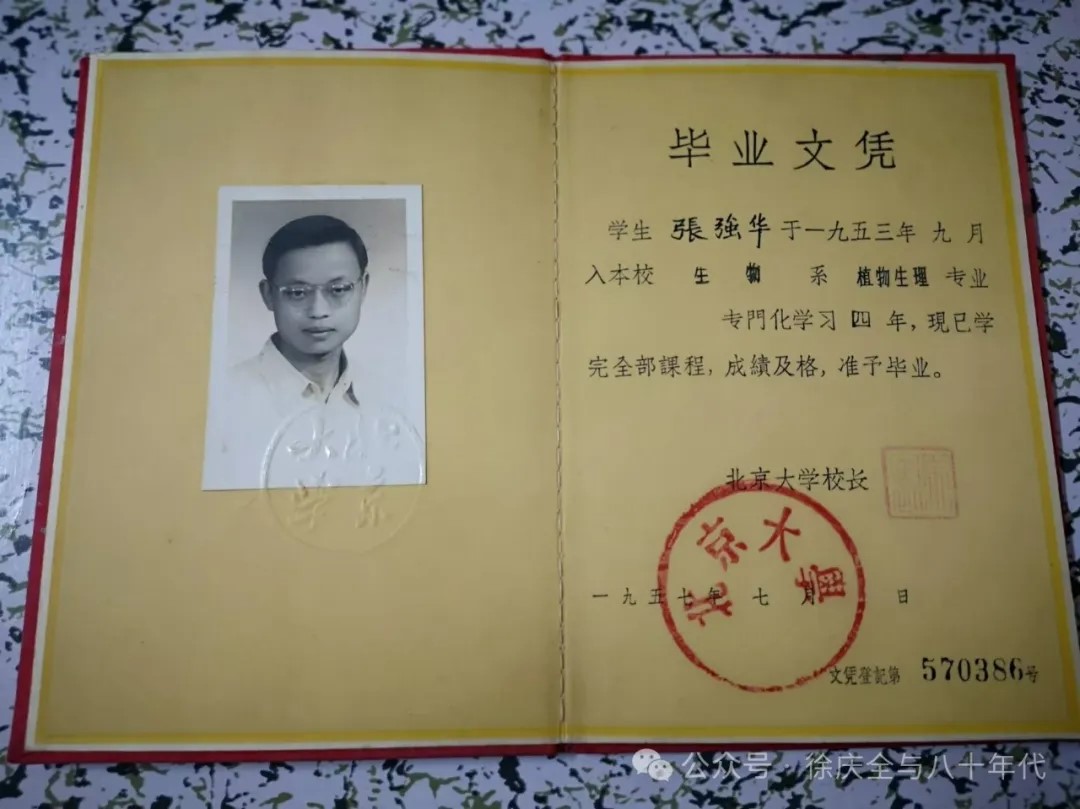 毕业文凭
学生 張強华 于一九五三年 九 月
入本校 生 物 系 植物生理 专业
专門化学习 四 年，現已学
完全部課程，成績及格，准予毕业。
北京大学校长
北京大學
一九五七年 七 月 日
文凭登記第 570386号
公众号 · 徐庆全与八十年代